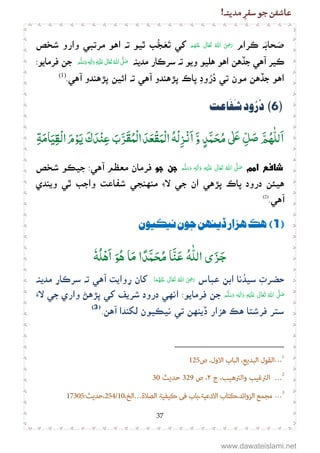 عاشقن جو سفرِ مدينہ!
صَحابہ ڪرام رَضِیَ اللهُ تَعَالٰی عَنْہُم کي تَعَجُّب ٿيو تہ اهو مرتبي وارو شخص
ڪير آهي جڏهن اهو هليو ويو تہ سرڪار مدينہ صَلَّی اللهُ تَعَالٰی عَلَيْہِ وَاٰلِہٖ وَسَلَّم جن فرمايو:
اهو جڏهن مون تي دُرُودِ پاڪ پڙهندو آهي تہ ائين پڙهندو آهي.(1)
(6) دُرُودِ شفاعت
اَللّٰهُمَّ صَلِّ عَلٰى مُحَمَّدٍ وَّ اَنْزِلْهُ الْمَقْعَدَ الْمُقَرَّبَ عِنْدَكَ يَوْمَ الْقِيَامَةِ
شافعِ امم صَلَّی اللهُ تَعَالٰی عَلَيْہِ وَاٰلِہٖ وَسَلَّم جن جو فرمان معظم آهي: جيڪو شخص
هيئن درود پاڪ پڙهي ان جي لاءِ منهنجي شفاعت واجب ٿي ويندي
آهي.(2)
(1) هڪ هزار ڏينهن جون نيڪيون
جَزَى اللّٰهُ عَنَّا مُحَمَّدًا مَا هُوَ اَهْلُهُ
حضرتِ سيدُنا ابن عباس رَضِیَ اللهُ تَعَالٰی عَنْہُمَا کان روايت آهي تہ سرڪار مدينہ
صَلَّی اللهُ تَعَالٰی عَلَيْہِ وَاٰلِہٖ وَسَلَّم جن فرمايو: انهي درود شريف کي پڙهڻ واري جي لاءِ
ستر فرشتا هڪ هزار ڏينهن تي نيڪيون لکندا آهن.(3)
1…القول البديع، الباب الاول، ص125
2… الترغيب والترهيب، ج ٢، ص 329 حديث 30
3… مجمع الزوائد،كتاب الادعية،باب فى كيفية الصلاة…الخ،254/10،حديث:17305
37
www.dawateislami.net